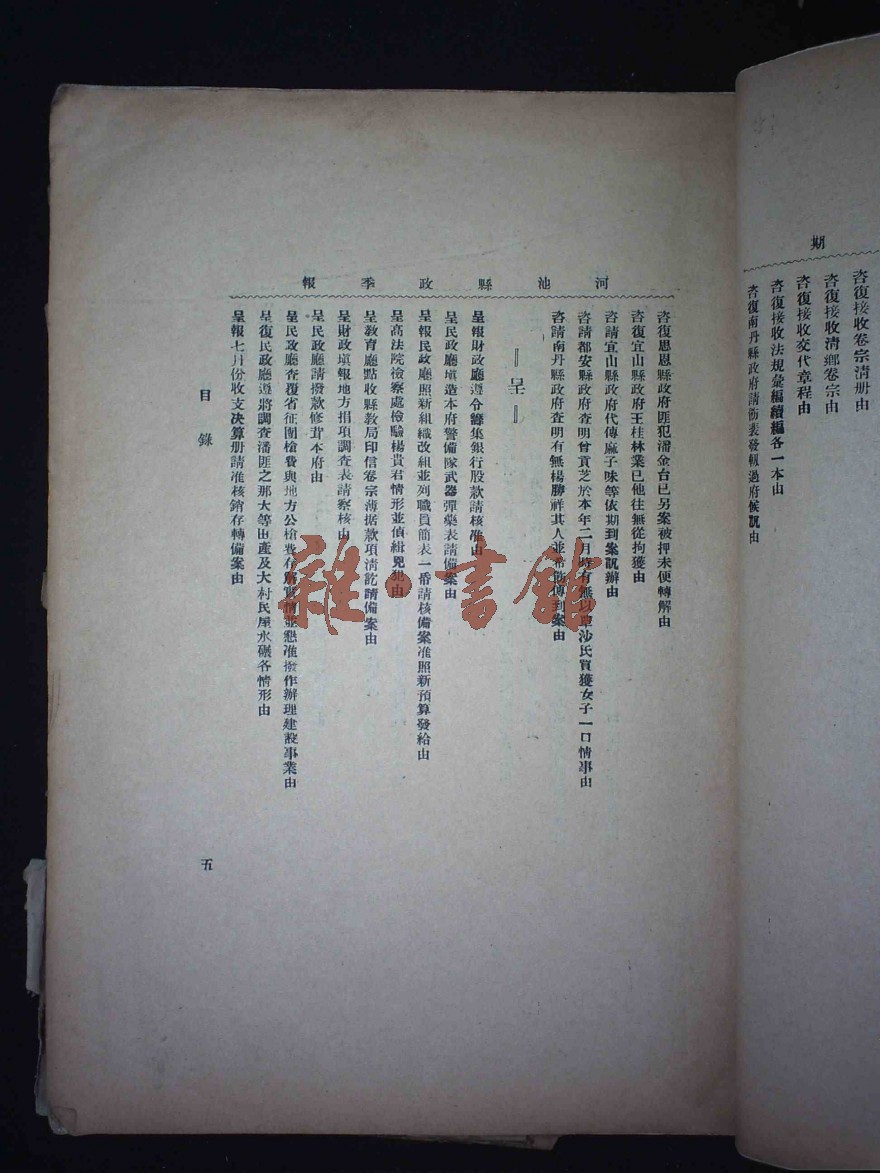 期
咨復接收卷宗清册由
咨復接收清鄉卷宗由
咨復接收交代章程由
咨復接收法規彙編續編各一本由
咨復南丹縣政府請飭表發輒過府候訊由
河池縣政季報
咨復思恩縣政府匪犯潘金台已另案被押未便轉解由
咨復宜山縣政府王桂林業已他往無從拘獲由
咨請宜山縣政府代傳麻子味等依期到案訊辦由
咨請都安縣政府查明曾貢芝於本年二月時有無以覃沙氏買獲女子一口情事由
咨請南丹縣政府查明有無楊勝祥其人並希飭傳到案由
呈
呈報財政廳遵令籌集銀行股款請核准由
呈民政廳填造本府警備隊武器彈藥表請備案由
呈報民政廳照新組織改組並列職員簡表一册請核備案准照新預算發給由
呈高法院檢察處檢驗楊貴君情形並偵緝兇犯由
呈教育廳點收縣教局印信卷宗薄据款項清訖請備案由
呈財政填報地方捐項調查表請察核由
呈民政廳請撥款修葺本府由
呈民政廳查覆省征團槍費與地方公槍費存解實情並懇准撥作辦理建設事業由
呈復民政廳遵將調查潘匪之那大等田產及大村民屋水碾各情形由
呈報七月份收支決算册請准核銷存轉備案由
目錄
五
雜·書館